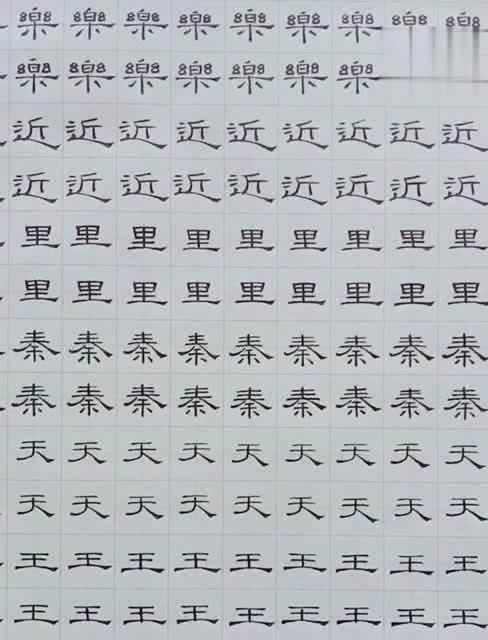 樂樂樂樂樂樂樂樂樂
樂樂樂樂樂樂樂
近近近近近近近近近
近近近近近近近近近
里里里里里里里里里
里里里里里里里里里
秦秦秦秦秦秦秦秦秦
秦秦秦秦秦秦秦秦秦
天天天天天天天天天
天天天天天天天天天
王王王王王王王王王
王王王王王王王王王